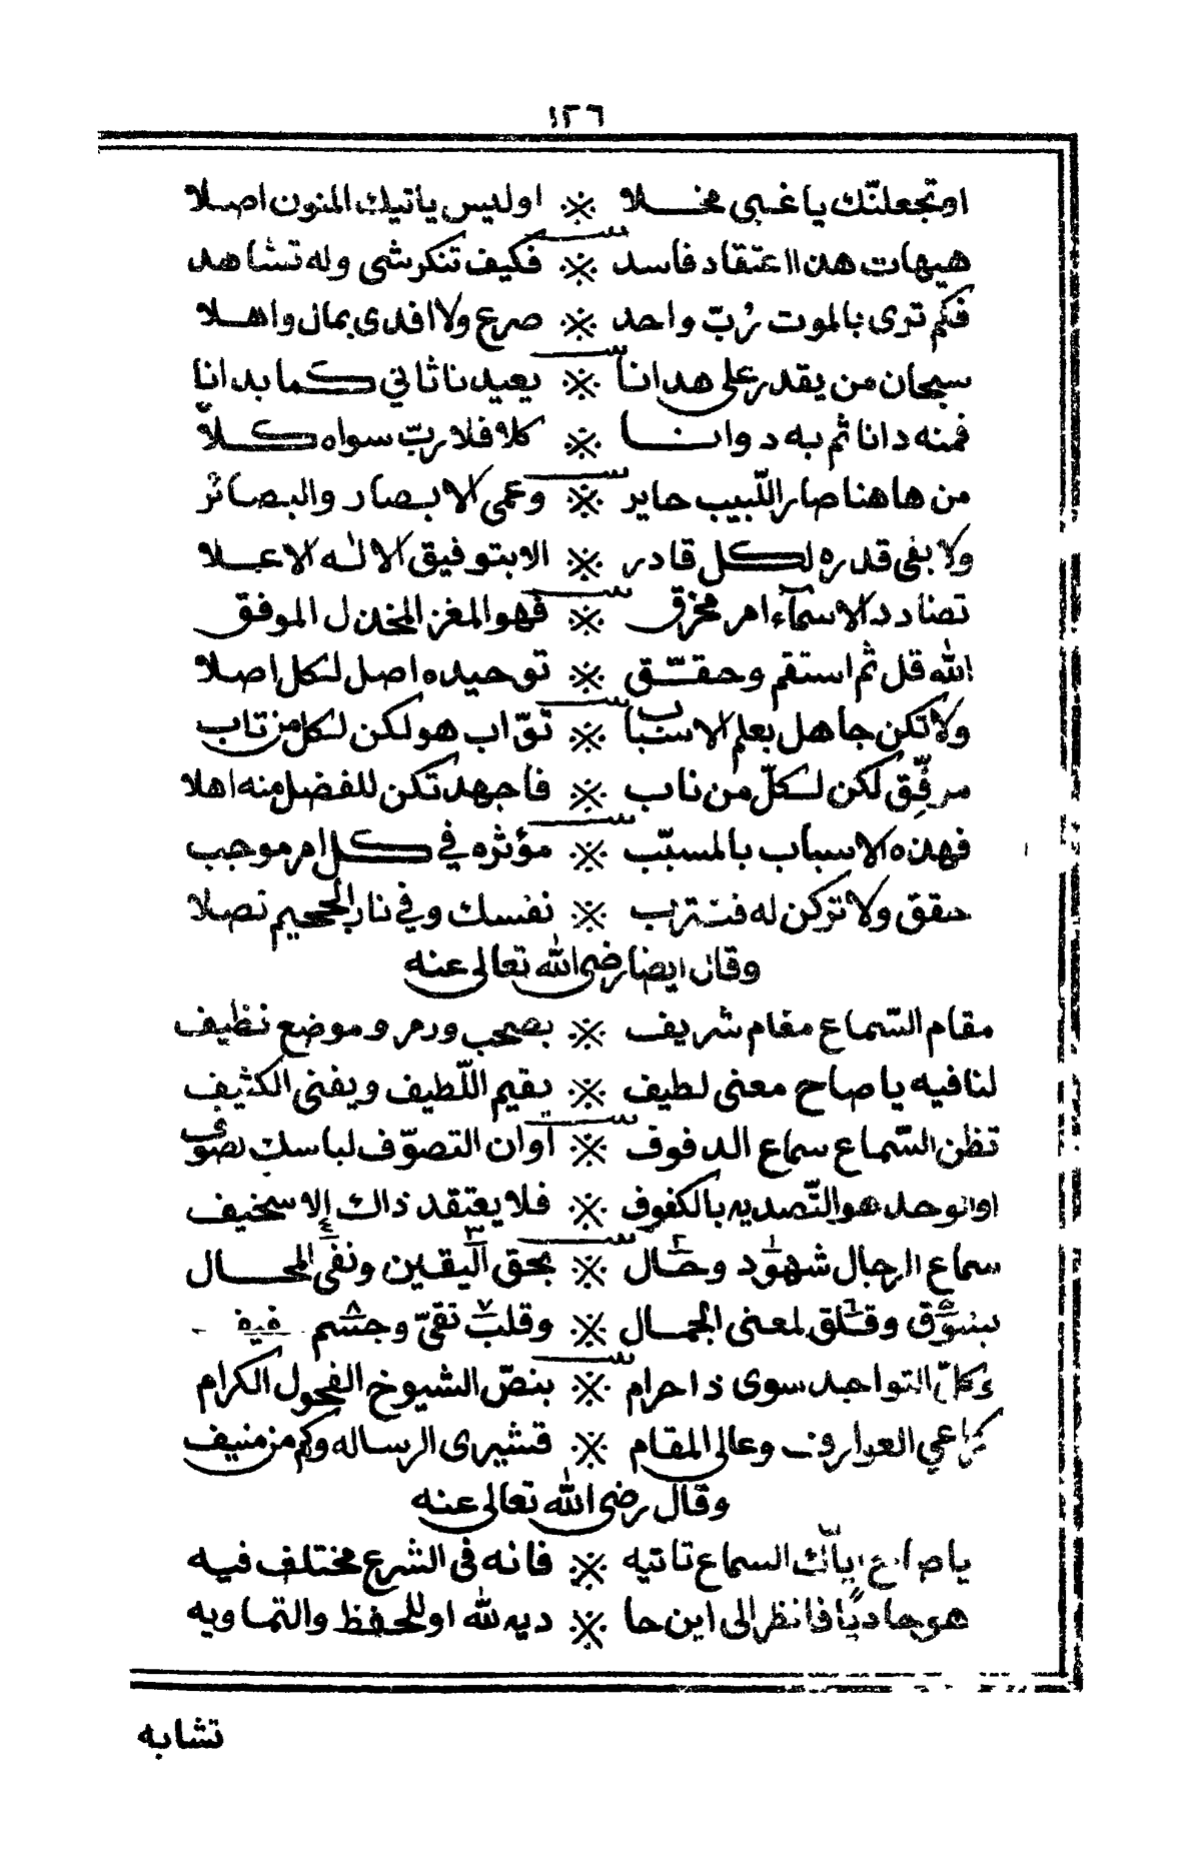 ١٢٦
او تجعلنّك يا غبي مخلا ※ اوليس ياتيك المنون اصلا
هيهات هذا اعتقاد فاسد ※ فكيف تنكر شى وله تشاهد
فكم ترى بالموت رُبّ واحد ※ صرع ولا افدى بمال واهلا
سبحان من يقدر على هدانا ※ يعيدنا ثاني كما بدانا
فمنه دانا ثم به دوانا ※ كلا فلا ربّ سواه كلاّ
من هاهنا صار اللّبيب حاير ※ وعمى الابصار والبصائر
ولا بقى قدره لكل قادر ※ الا بتوفيق الاله الاعلا
تضادد الاسمآء امر مخرق ※ فهو المغز المخذل الموفق
الله قل ثم استقم وحقّق ※ توحيده اصل لكل اصلا
ولا تكن جاهل بعلم الاسباب ※ توّاب هو لكن لكل من تاب
مرفّق لكن لكلّ من ناب ※ فاجهد تكن للفضل منه اهلا
فهذه الاسباب بالمسبّب ※ مؤثره في كل امر موجب
حقق ولا تركن له فتترب ※ نفسك وفي نار الجحيم تصلا
وقال ايضا رضى الله تعالى عنه
مقام السّماع مقام شريف ※ بصحب ورمر وموضع نظيف
لنا فيه يا صاح معنى لطيف ※ يقيم اللّطيف ويفنى الكثيف
تظن السّماع سماع الدفوف ※ او ان التصوّف لباسك لصوف
او التوحد هو التّصديه بالكفوف ※ فلا يعتقد ذاك إلا سخيف
سماع الرجال شهود وحال ※ بحق اليقين ونفى المحال
بشوق وقلق لمعنى الجمال ※ وقلب نقىّ وجسم
وكلّ التواجد سوى ذا حرام ※ بنصّ الشيوخ الفحول الكرام
كراعي العوارف وعالى المقام ※ قشيرى الرساله وكم من منيف
وقال رضى الله تعالى عنه
يا صاح ايّاك السماع تاتيه ※ فانه فى الشرع مختلف فيه
هو حاديًا فانظر الى اين حا ※ ديه لله او للحفظ والتماويه
تشابه